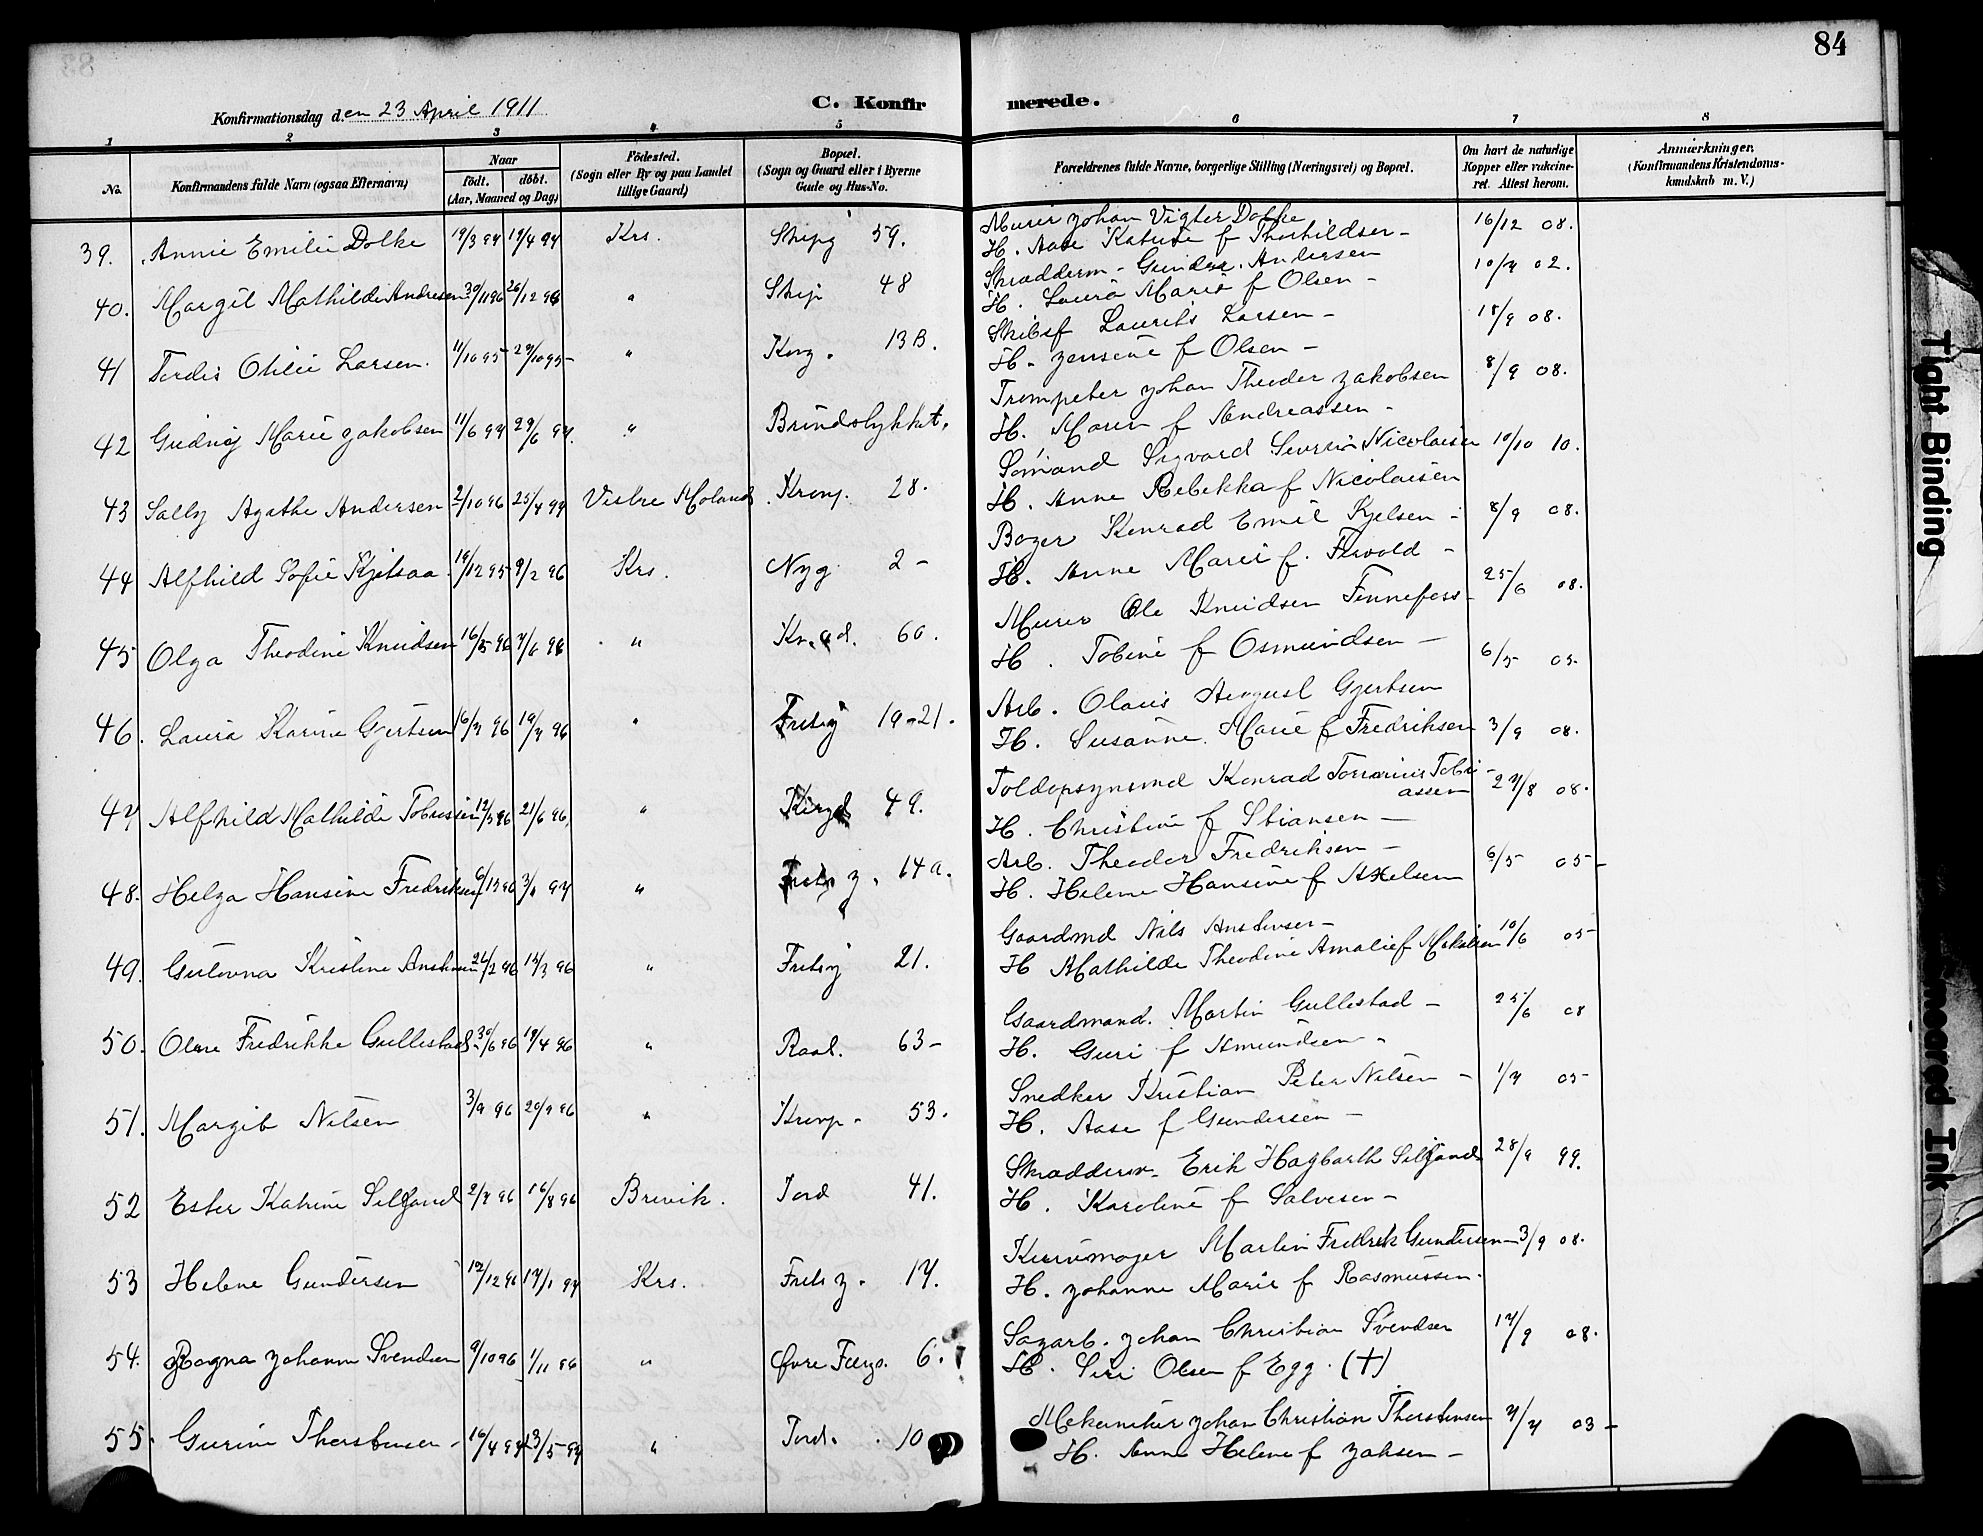 84
Konfirmationsdag den 23 April 1911
C. Konfirmerede.
1 2 3 4 5 6 7 8
No.
Konfirmandens fulde Navn (ogsaa Efternavn)
Naar
födt. döbt.
(Aar, Maaned og Dag)
Födested.
(Sogn eller By og paa Landet
tillige Gaard)
Bopæl.
(Sogn og Gaard eller i Byerne
Gade og Hus-No.
Forældrenes fulde Navne, borgerlige Stilling (Næringsvei) og Bopæl.
Om havt de naturlige
Kopper eller vakcine-
ret. Attest herom.
Anmærkninger.
(Konfirmandens Kristendoms-
kundskab m. V.)
39. Annie Emilie Dolke 19/3 97 19/4 97 Krs. Skipg 59. Murer Johan Vigter Dolke 16/12 08.
H. Aase Katrine f Thorkildsen -
40. Margit Mathilde Andresen 30/11 96 26/12 96 " Skip 48 Skrædderm - Gunder Andersen 10/7 02.
H. Laura Marie f Olsen -
41 Tordis Otilie Larsen. 11/10 95 29/10 95 " Kong. 13 B. Skibsf Laurits Larsen - 18/9 08.
H. Jensine f Olsen -
42 Gudvig Marie Jakobsen 11/6 97 29/6 97. " Brundslykket. Trompeter Johan Theodor Jakobsen 8/9 08.
H. Maren f Andreassen -
43 Sally Agathe Andersen 2/10 96 25/4 97 Vestre Moland Kronp. 28. Sømand Sigvard Severin Nicolaisen 10/10 10.
H. Anne Rebekka f Nicolaisen
44 Alfhild Sofie Kjelsaa 19/12 95 9/2 96 Krs. Nyg 2 - Bager Konrad Emil Kjelsen - 8/9 08.
H. Anne Marie f.
45 Olga Theodine Knudsen 16/5 96 7/6 96 " 60. Murer Ole Knudsen Finnefoss - 25/6 08.
H. Tobine f Osmundsen -
46. Laura Karine Gjertsen 16/3 96 19/7 96 " Festng 19-21. Arb. Olaus August Gjertsen 6/5 05.
H. Susanne Marie f Fredriksen 3/9 08.
47 Alfhild Mathilde Tobiassen 12/5 96 21/6 96, " 49. Toldopsynsmd Konrad Tobi-
assen 27/8 08.
H. Christine f Stiansen -
48. Helga Hansine Fredriksen 6/12 96 3/1 97 " 14 a. Arb. Theodor Fredriksen - 6/5 05-
H. Helene Hansine f Axelsen
49. Gustovna Kristine Anstensen 21/2 96 15/3 96 " Festng 21. Gaardmd Nils Anstensen - 10/6 05-
H Mathilde Theodine Amalie f Mikalsen
50. Olene Fredrikke Gullestad 30/6 96 19/4 96 " Raad. 63 - Gaardmand. Martin Gullestad - 25/6 08
H. Guri f Amundsen -
51. Margit Nilsen 3/9 96 20/9 96 " Kronp. 53. Snedker Kristian Peter Nilsen - 1/7 05-
H. Aase f Gundersen -
52 Ester Katrine Seljand 2/7 96 16/8 96 Brevik. Tord 41. Skrædderm. Erik Hagbarth Seljand 28/9 99.
H. Karoline f Salvesen -
53 Helene Gundersen 12/12 96 17/1 97 Krs. Festng. 17. Kurvmager Martin Fredrik Gundersen - 3/9 08.
H. Johanne Marie f Rasmussen.
54. Ragna Johanne Svendsen 9/10 96 1/11 96 " Øvre 6. Sagarb. Johan Christian Svendsen 17/9 08.
H. Siri Olsen f Egg. (†)
55. Gurine Thorstensen - 16/4 97 23/5 97 " Tord. 10 Mekaniker Johan Christian Thorstensen 7/7 03 -
H. Anne Helene f Jahsen -
Tight Binding
Smeared Ink